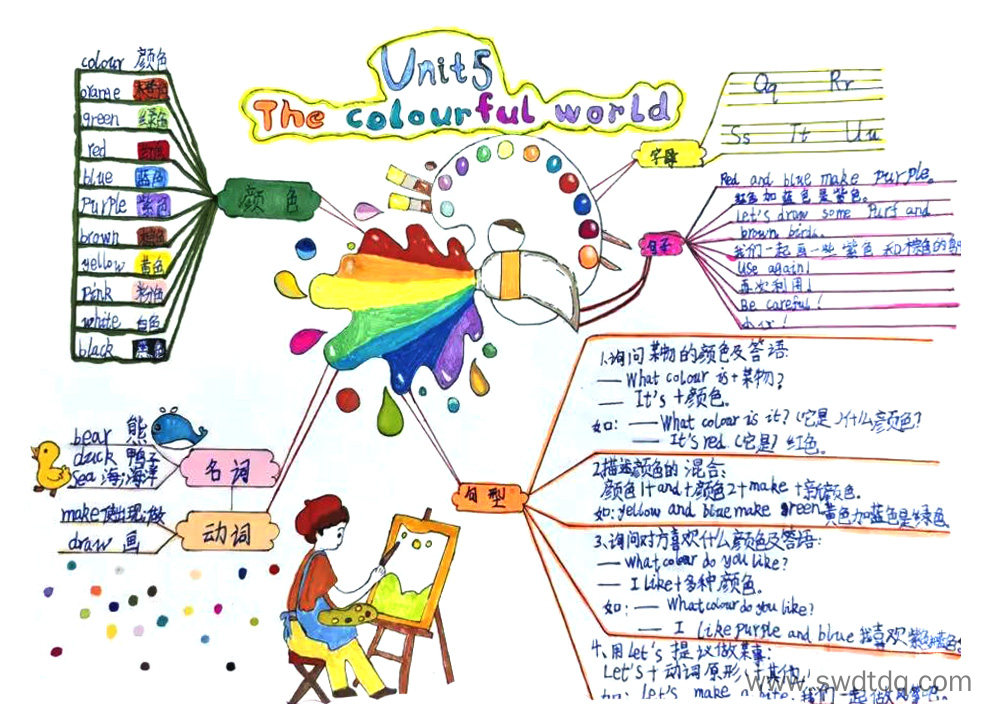 Unit5
The colourful world
colour 颜色
orange 橙色
green 绿色
red 红色
blue 蓝色
purple 紫色
brown 棕色
yellow 黄色
pink 粉色
white 白色
black 黑色
颜色
字母
Qq Rr
Ss Tt Uu
句子
Red and blue make purple.
红色加蓝色是紫色。
Let's draw some and
brown birds.
我们一起画一些紫色和棕色的
Use again!
再次利用!
Be careful!
小心!
名词
bear 熊
duck 鸭子
sea 海;海洋
动词
make 使出现;做
draw 画
句型
1.询问某物的颜色及答语:
— What colour is+某物?
— It's+颜色.
如: — What colour is it? (它是)什么颜色?
— It's red. (它是) 红色.
2.描述颜色的混合:
颜色1+and+颜色2+make+新颜色.
如: yellow and blue make green. 黄色加蓝色是绿色
3、询问对方喜欢什么颜色及答语:
— What colour do you like?
— I like+多种颜色.
如: — What colour do you like?
— I like purple and blue 我喜欢紫色和蓝色
4、用let's提议做某事:
Let's+动词原形+其他!
如: Let's make a kite. 我们一起做风筝吧.
www.swdtdq.com